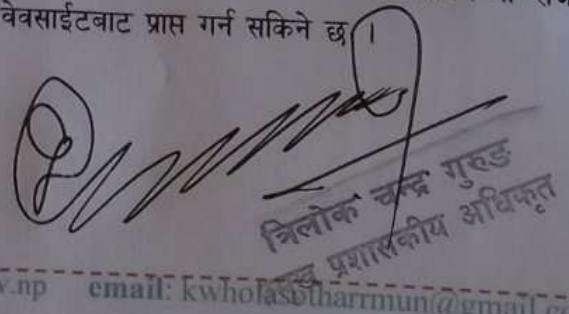 वेवसाईटबाट प्राप्त गर्न सकिने छ ।
त्रिलोक चन्द्र गुरुङ
प्रशासकीय अधिकृत
v.np email: kwholasotharrmun@gmail.co